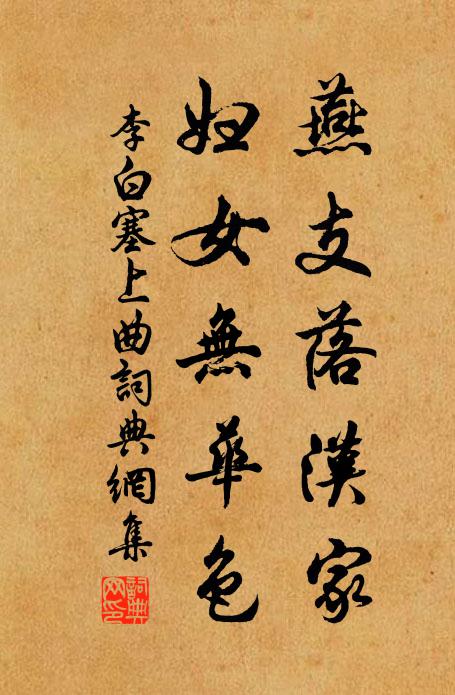 燕支落漢家
婦女無華色
李白塞上曲詞典網集
詞典網印